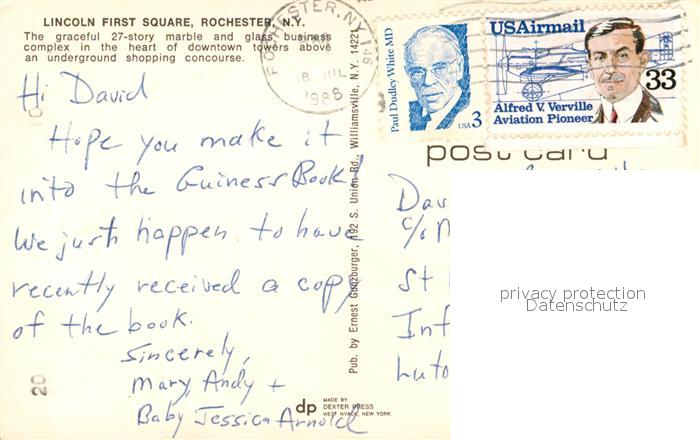 LINCOLN FIRST SQUARE, ROCHESTER, N.Y.
The graceful 27-story marble and glass business
complex in the heart of downtown towers above
an underground shopping concourse.
ROCHESTER, NY 146
JUL
1988
Paul Dudley White MD
USA 3
USAirmail
33
Alfred V. Verville
Aviation Pioneer
post card
Hi David
Hope you make it
into the Guiness Book!
We just happen to have
recently received a copy
of the book.
Sincerely,
Mary, Andy +
Baby Jessica Arnold
Pub. by Ernest Gunzburger, 192 S. Union Rd., Williamsville, N.Y. 14221
Dav
c/o M
St
Inf
Luto
privacy protection
Datenschutz
20
dp
MADE BY
DEXTER PRESS
WEST NYACK, NEW YORK